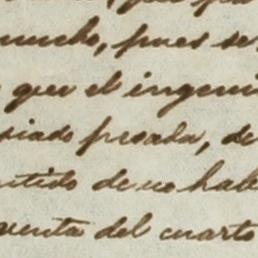 mucho, pues se
que el ingeni
siado pesada, de
ntido de no hab
venta del cuarto